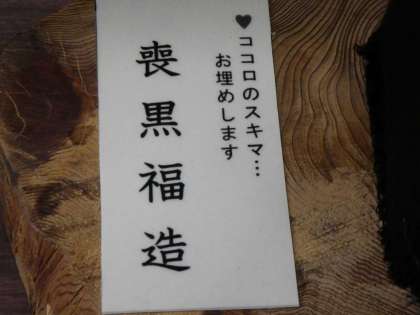 ♥ココロのスキマ…
お埋めします
喪黒福造